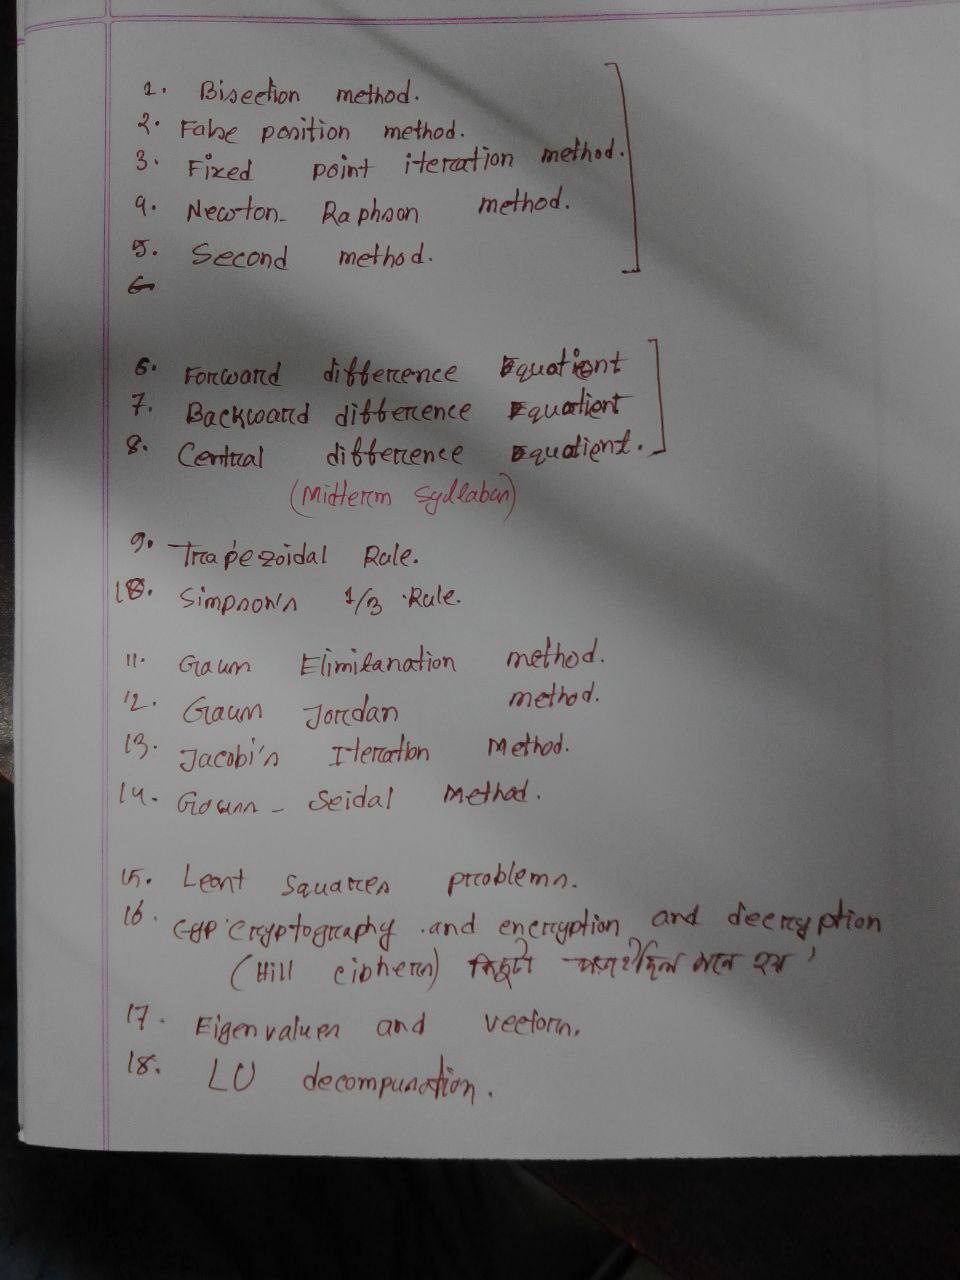 1. Bisection method.
2. False position method.
3. Fixed point iteration method.
4. Newton- Raphson method.
5. Second method.
6
6. Forward difference Equotient
7. Backward difference Equotient
8. Central difference Equotient.
(Midterm Syllabus)
9. Trapezoidal Rule.
10. Simpson's 1/3 Rule.
11. Gauss Elimilanation method.
12. Gauss Jordan method.
13. Jacobi's Iteration Method.
14. Gauss - Seidal Method.
15. Least Squares problems.
16. Cryptography and encryption and decryption
(Hill ciphers) কিছুটা মনে হয়
17. Eigenvalues and vectors.
18. LU decomposation.